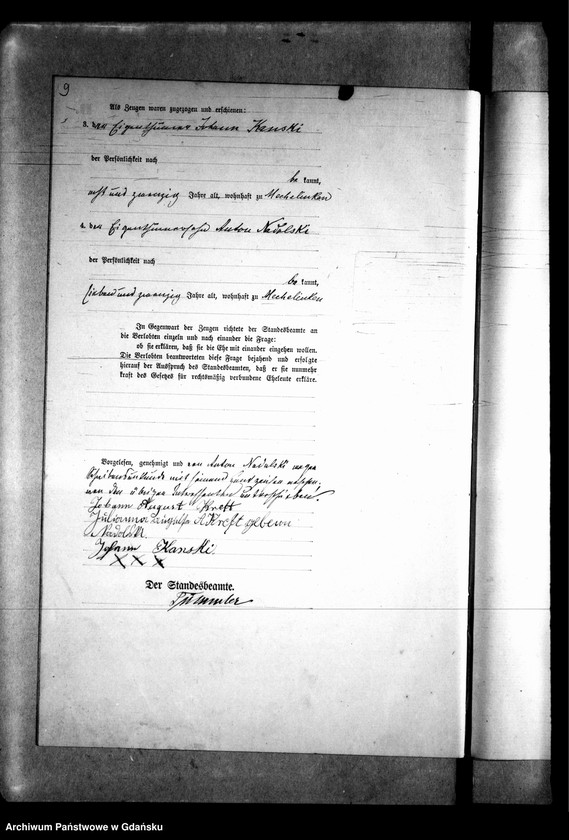 9
Als Zeugen waren zugezogen und erschienen:
3. der Eigenthümer Johann Kanski
der Persönlichkeit nach
be kannt,
acht und zwanzig Jahre alt, wohnhaft zu Mechelinken
4. der Eigenthümersohn Anton Nadolski
der Persönlichkeit nach
be kannt,
sieben und zwanzig Jahre alt, wohnhaft zu Mechelinken
In Gegenwart der Zeugen richtete der Standesbeamte an
die Verlobten einzeln und nach einander die Frage:
ob sie erklären, daß sie die Ehe mit einander eingehen wollen.
Die Verlobten beantworteten diese Frage bejahend und erfolgte
hierauf der Ausspruch des Standesbeamten, daß er sie nunmehr
kraft des Gesetzes für rechtmäßig verbundene Eheleute erkläre.
Vorgelesen, genehmigt und von Anton Nadolski wegen
Schreibensunkunde mit seinem Handzeichen versehen,
von den übrigen unterschrieben.
Johann August Kreft
Julianna Kreft geboren
Nadolski.
Johann Kanski.
XXX
Der Standesbeamte.
Archiwum Państwowe w Gdańsku